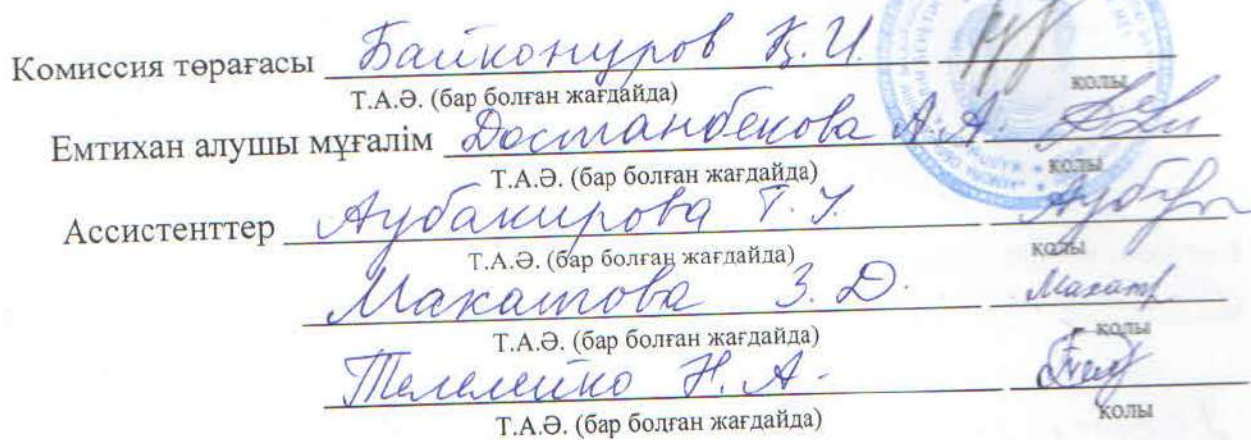 Комиссия төрағасы Байконуров Қ.И.
қолы
Т.А.Ә. (бар болған жағдайда)
Емтихан алушы мұғалім Достанбекова А.А.
қолы
Т.А.Ә. (бар болған жағдайда)
Ассистенттер Аубакирова Т.
қолы
Т.А.Ә. (бар болған жағдайда)
Макатова З.Д.
қолы
Т.А.Ә. (бар болған жағдайда)
Н.А.
қолы
Т.А.Ә. (бар болған жағдайда)